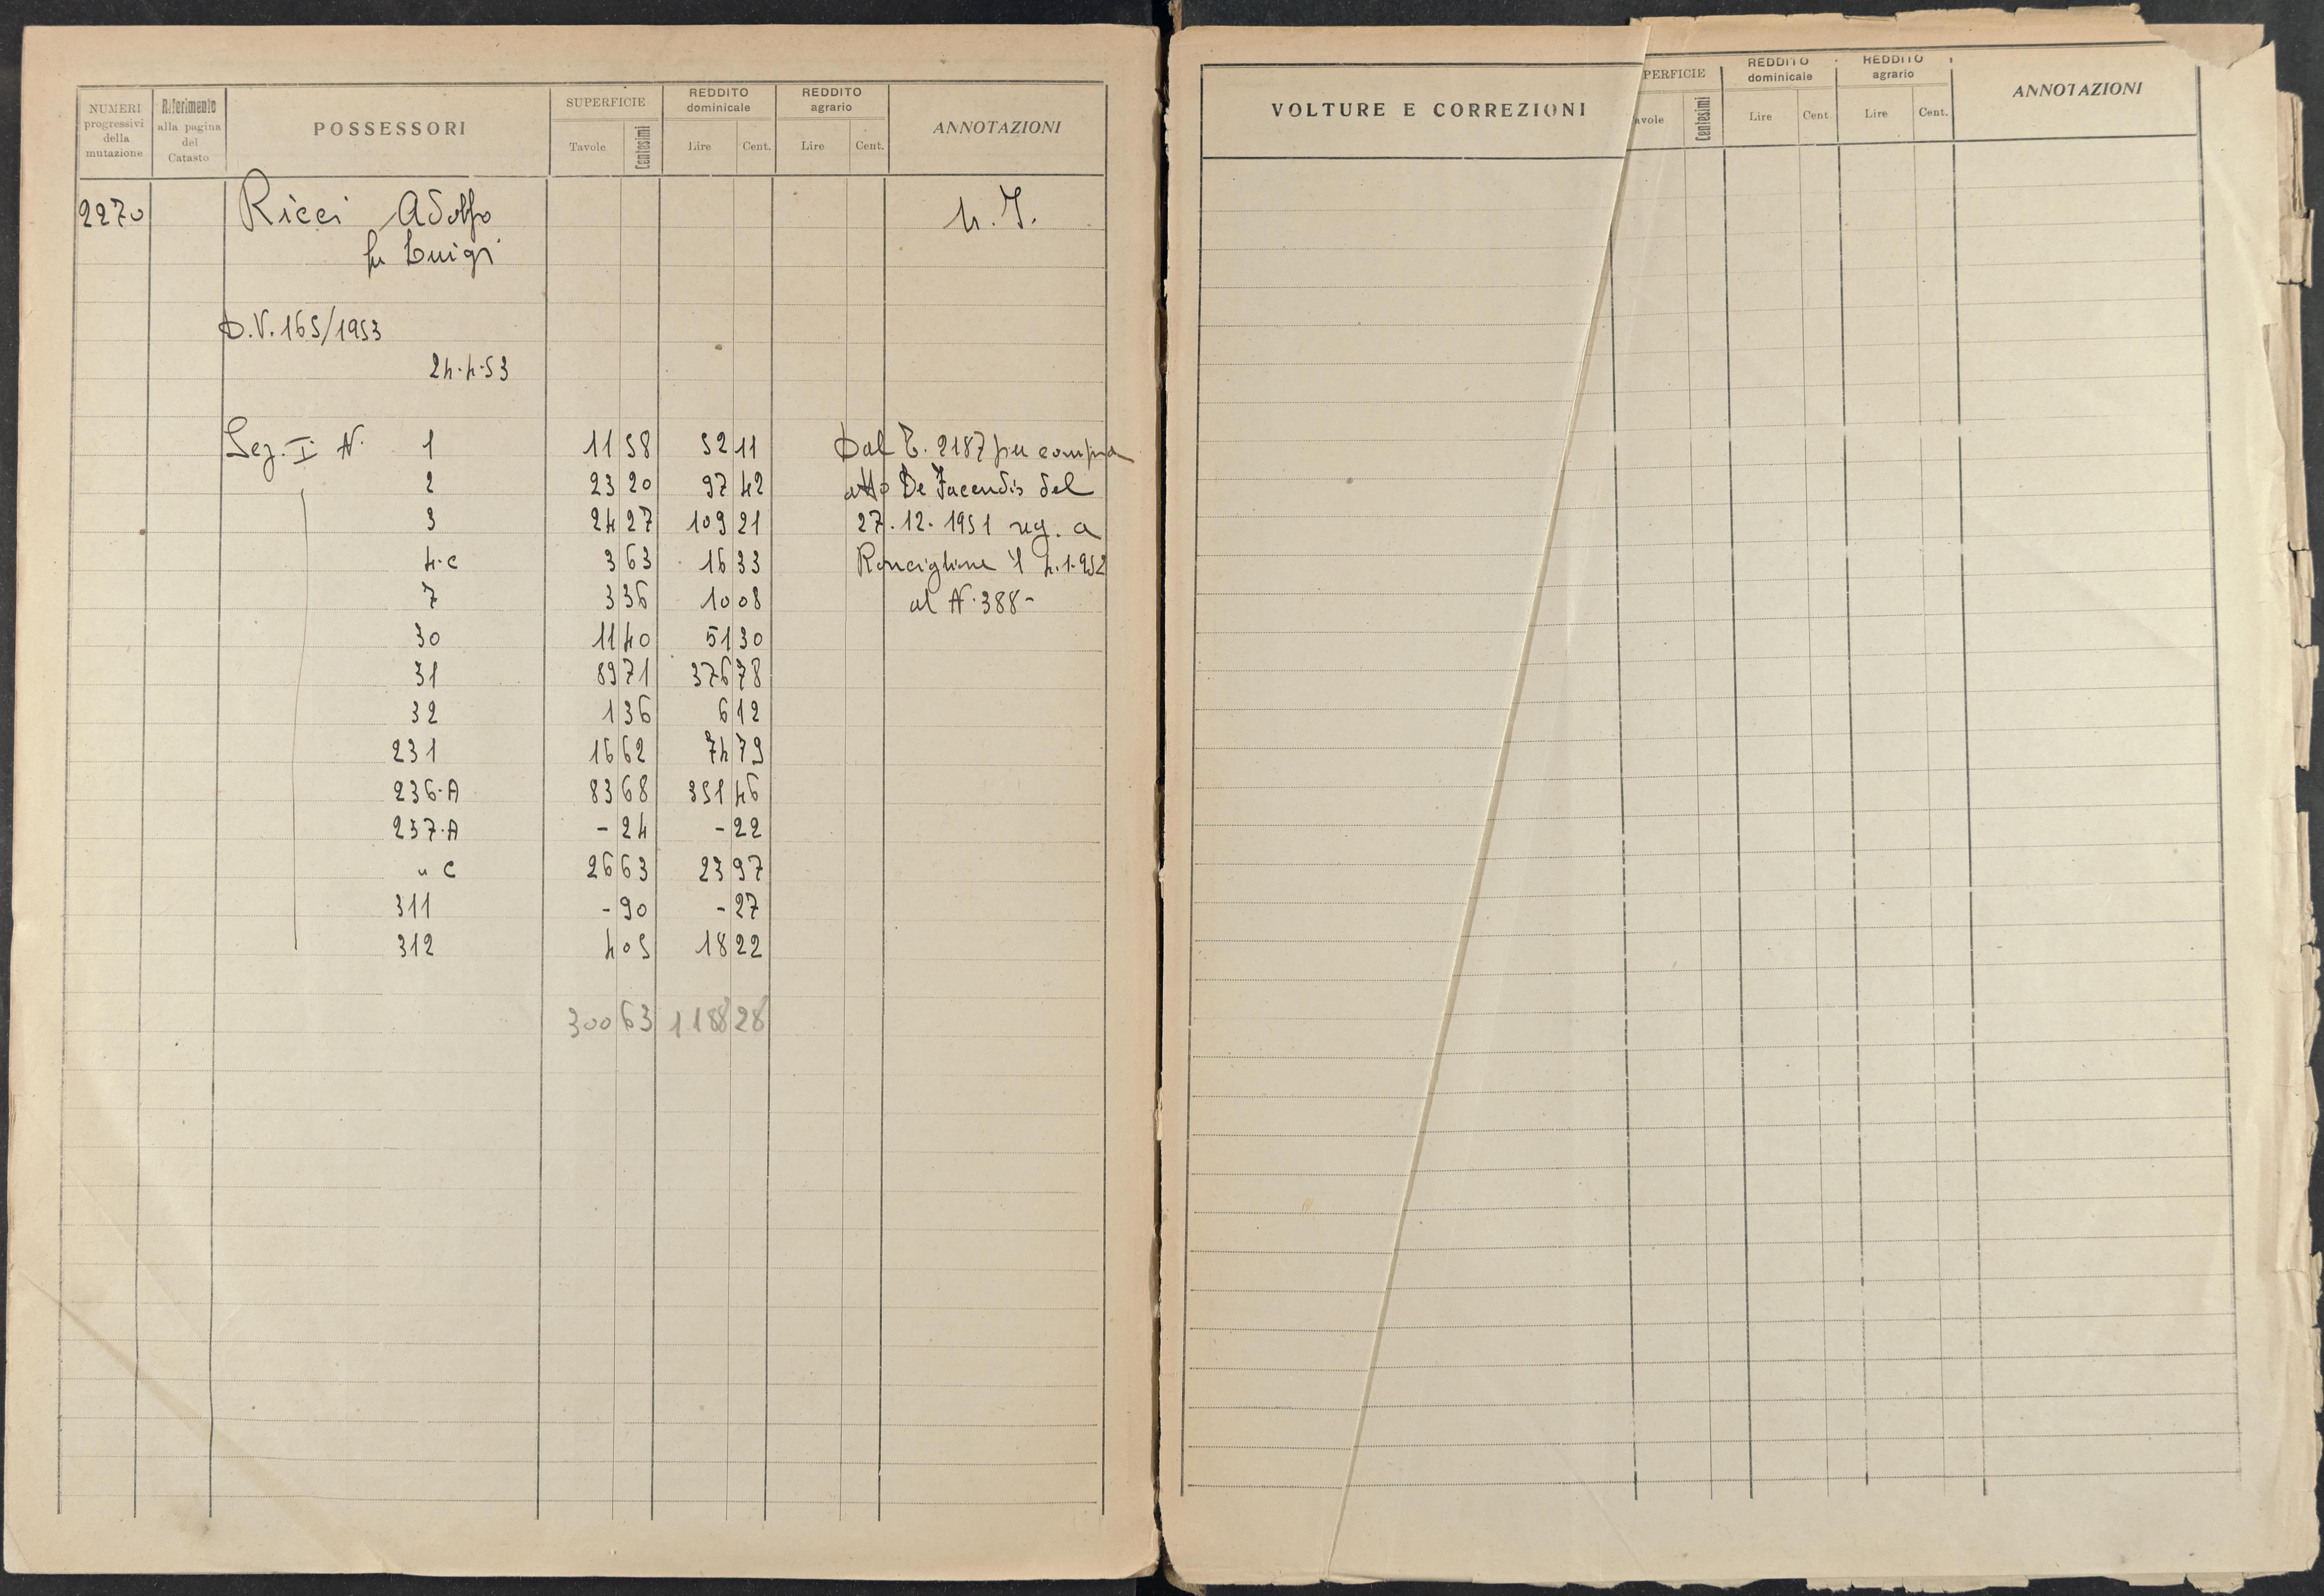 NUMERI progressivi della mutazione | Riferimento alla pagina del Catasto | POSSESSORI | SUPERFICIE Tavole Centesimi | REDDITO dominicale Lire Cent. | REDDITO agrario Lire Cent. | ANNOTAZIONI
2270 Ricci Adolfo
fu Luigi
D.V. 165/1953
24.4.53
Sez. I N. 1 11 58 52 11 Dal T. 2187 per compra
2 23 20 97 42 atto De Facendis del
3 24 27 109 21 27.12.1951 reg. a
4.C 3 63 16 33 Ronciglione il 4.1.952
7 3 36 10 08 al N. 388-
30 11 40 51 30
31 89 71 376 78
32 1 36 6 12
231 16 62 74 79
236.A 83 68 351 46
237.A - 24 - 22
" C 26 63 23 97
311 - 90 - 27
312 4 05 18 22
300 63 1188 28
VOLTURE E CORREZIONI | PERFICIE avole Centesimi | REDDITO dominicale Lire Cent. | REDDITO agrario Lire Cent. | ANNOTAZIONI